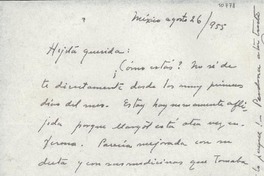 10778
México agosto 26/955
Hijita querida:
¿Cómo estás? No sé de
ti directamente desde los muy primeros
días del mes. Estoy nuevamente afli-
jida porque Margot está otra vez en-
ferma. Parecía mejorada con su
dieta y con sus medicinas que tomaba
Perdona esta